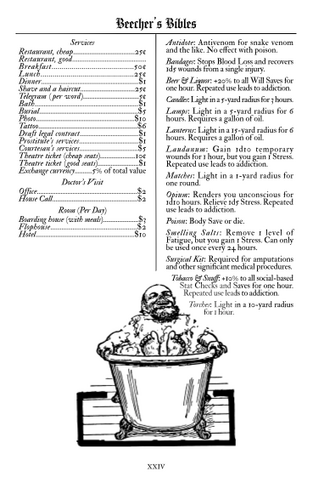 Beecher's Bibles
Services
Restaurant, cheap...............25¢
Restaurant, good
Breakfast..............50¢
Lunch..............25¢
Dinner..............$1
Shave and a haircut..............25¢
Telegram (per word)..............5¢
Bath..............$1
Burial..............$5
Photo..............$10
Tattoo..............$6
Draft legal contract..............$1
Prostitute's services..............$1
Courtesan's services..............$5
Theatre ticket (cheap seats)..............10¢
Theatre ticket (good seats)..............$1
Exchange currency.........5% of total value
Doctor's Visit
Office..............$2
House Call..............$2
Room (Per Day)
Boarding house (with meals)..............$7
Flophouse..............$2
Hotel..............$10
Antidote: Antivenom for snake venom
and the like. No effect with poison.
Bandages: Stops Blood Loss and recovers
1d5 wounds from a single injury.
Beer & Liquor: +20% to all Will Saves for
one hour. Repeated use leads to addiction.
Candle: Light in 2-yard radius for 7 hours.
Lamps: Light in a 5-yard radius for 6
hours. Requires a gallon of oil.
Lanterns: Light in a 15-yard radius for 6
hours. Requires a gallon of oil.
Laudanum: Gain 1d10 temporary
wounds for 1 hour, but you gain 1 Stress.
Repeated use leads to addiction.
Matches: Light in a 1-yard radius for
one round.
Opium: Renders you unconscious for
1d10 hours. Relieve 1d5 Stress. Repeated
use leads to addiction.
Poison: Body Save or die.
Smelling Salts: Remove 1 level of
Fatigue, but you gain 1 Stress. Can only
be used once every 24 hours.
Surgical Kit: Required for amputations
and other significant medical procedures.
Tobacco & Snuff: +10% to all social-based
Stat Checks and Saves for one hour.
Repeated use leads to addiction.
Torches: Light in a 10-yard radius
for 1 hour.
XXIV